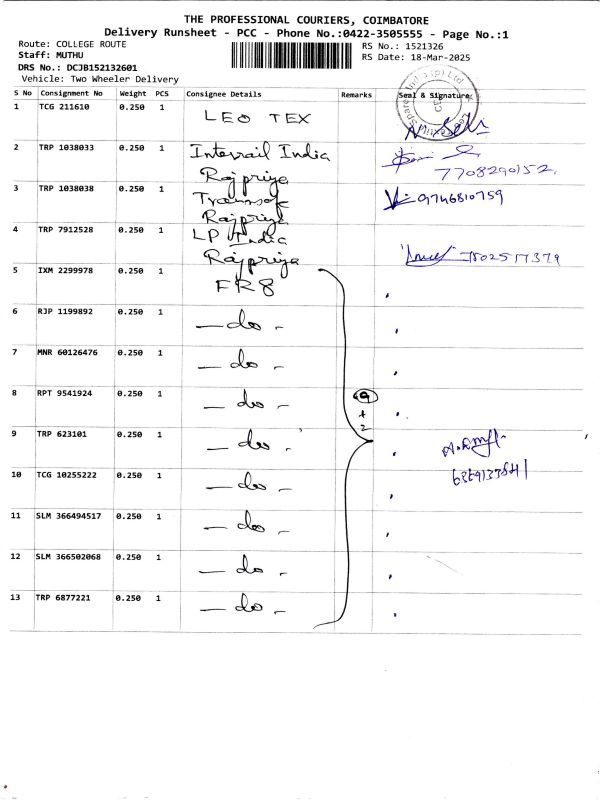 THE PROFESSIONAL COURIERS, COIMBATORE
Delivery Runsheet - PCC - Phone No.:0422-3505555 - Page No.:1
Route: COLLEGE ROUTE
RS No.: 1521326
Staff: MUTHU
RS Date: 18-Mar-2025
DRS No.: DCJB152132601
Vehicle: Two Wheeler Delivery
S No Consignment No Weight PCS Consignee Details Remarks Seal & Signature
1 TCG 211610 0.250 1 LEO TEX
2 TRP 1038033 0.250 1 Interrail India
Rajpriya
7708290152
3 TRP 1038038 0.250 1
Rajpriya
9746810759
4 TRP 7912528 0.250 1 LP India
Rajpriya
7502517379
5 IXM 2299978 0.250 1 FR8
6 RJP 1199892 0.250 1 — do -
7 MNR 60126476 0.250 1 — do -
8 RPT 9541924 0.250 1 — do -
9
+
2
9 TRP 623101 0.250 1 — do -
10 TCG 10255222 0.250 1 — do -
11 SLM 366494517 0.250 1 — do -
12 SLM 366502068 0.250 1 — do -
13 TRP 6877221 0.250 1 — do -